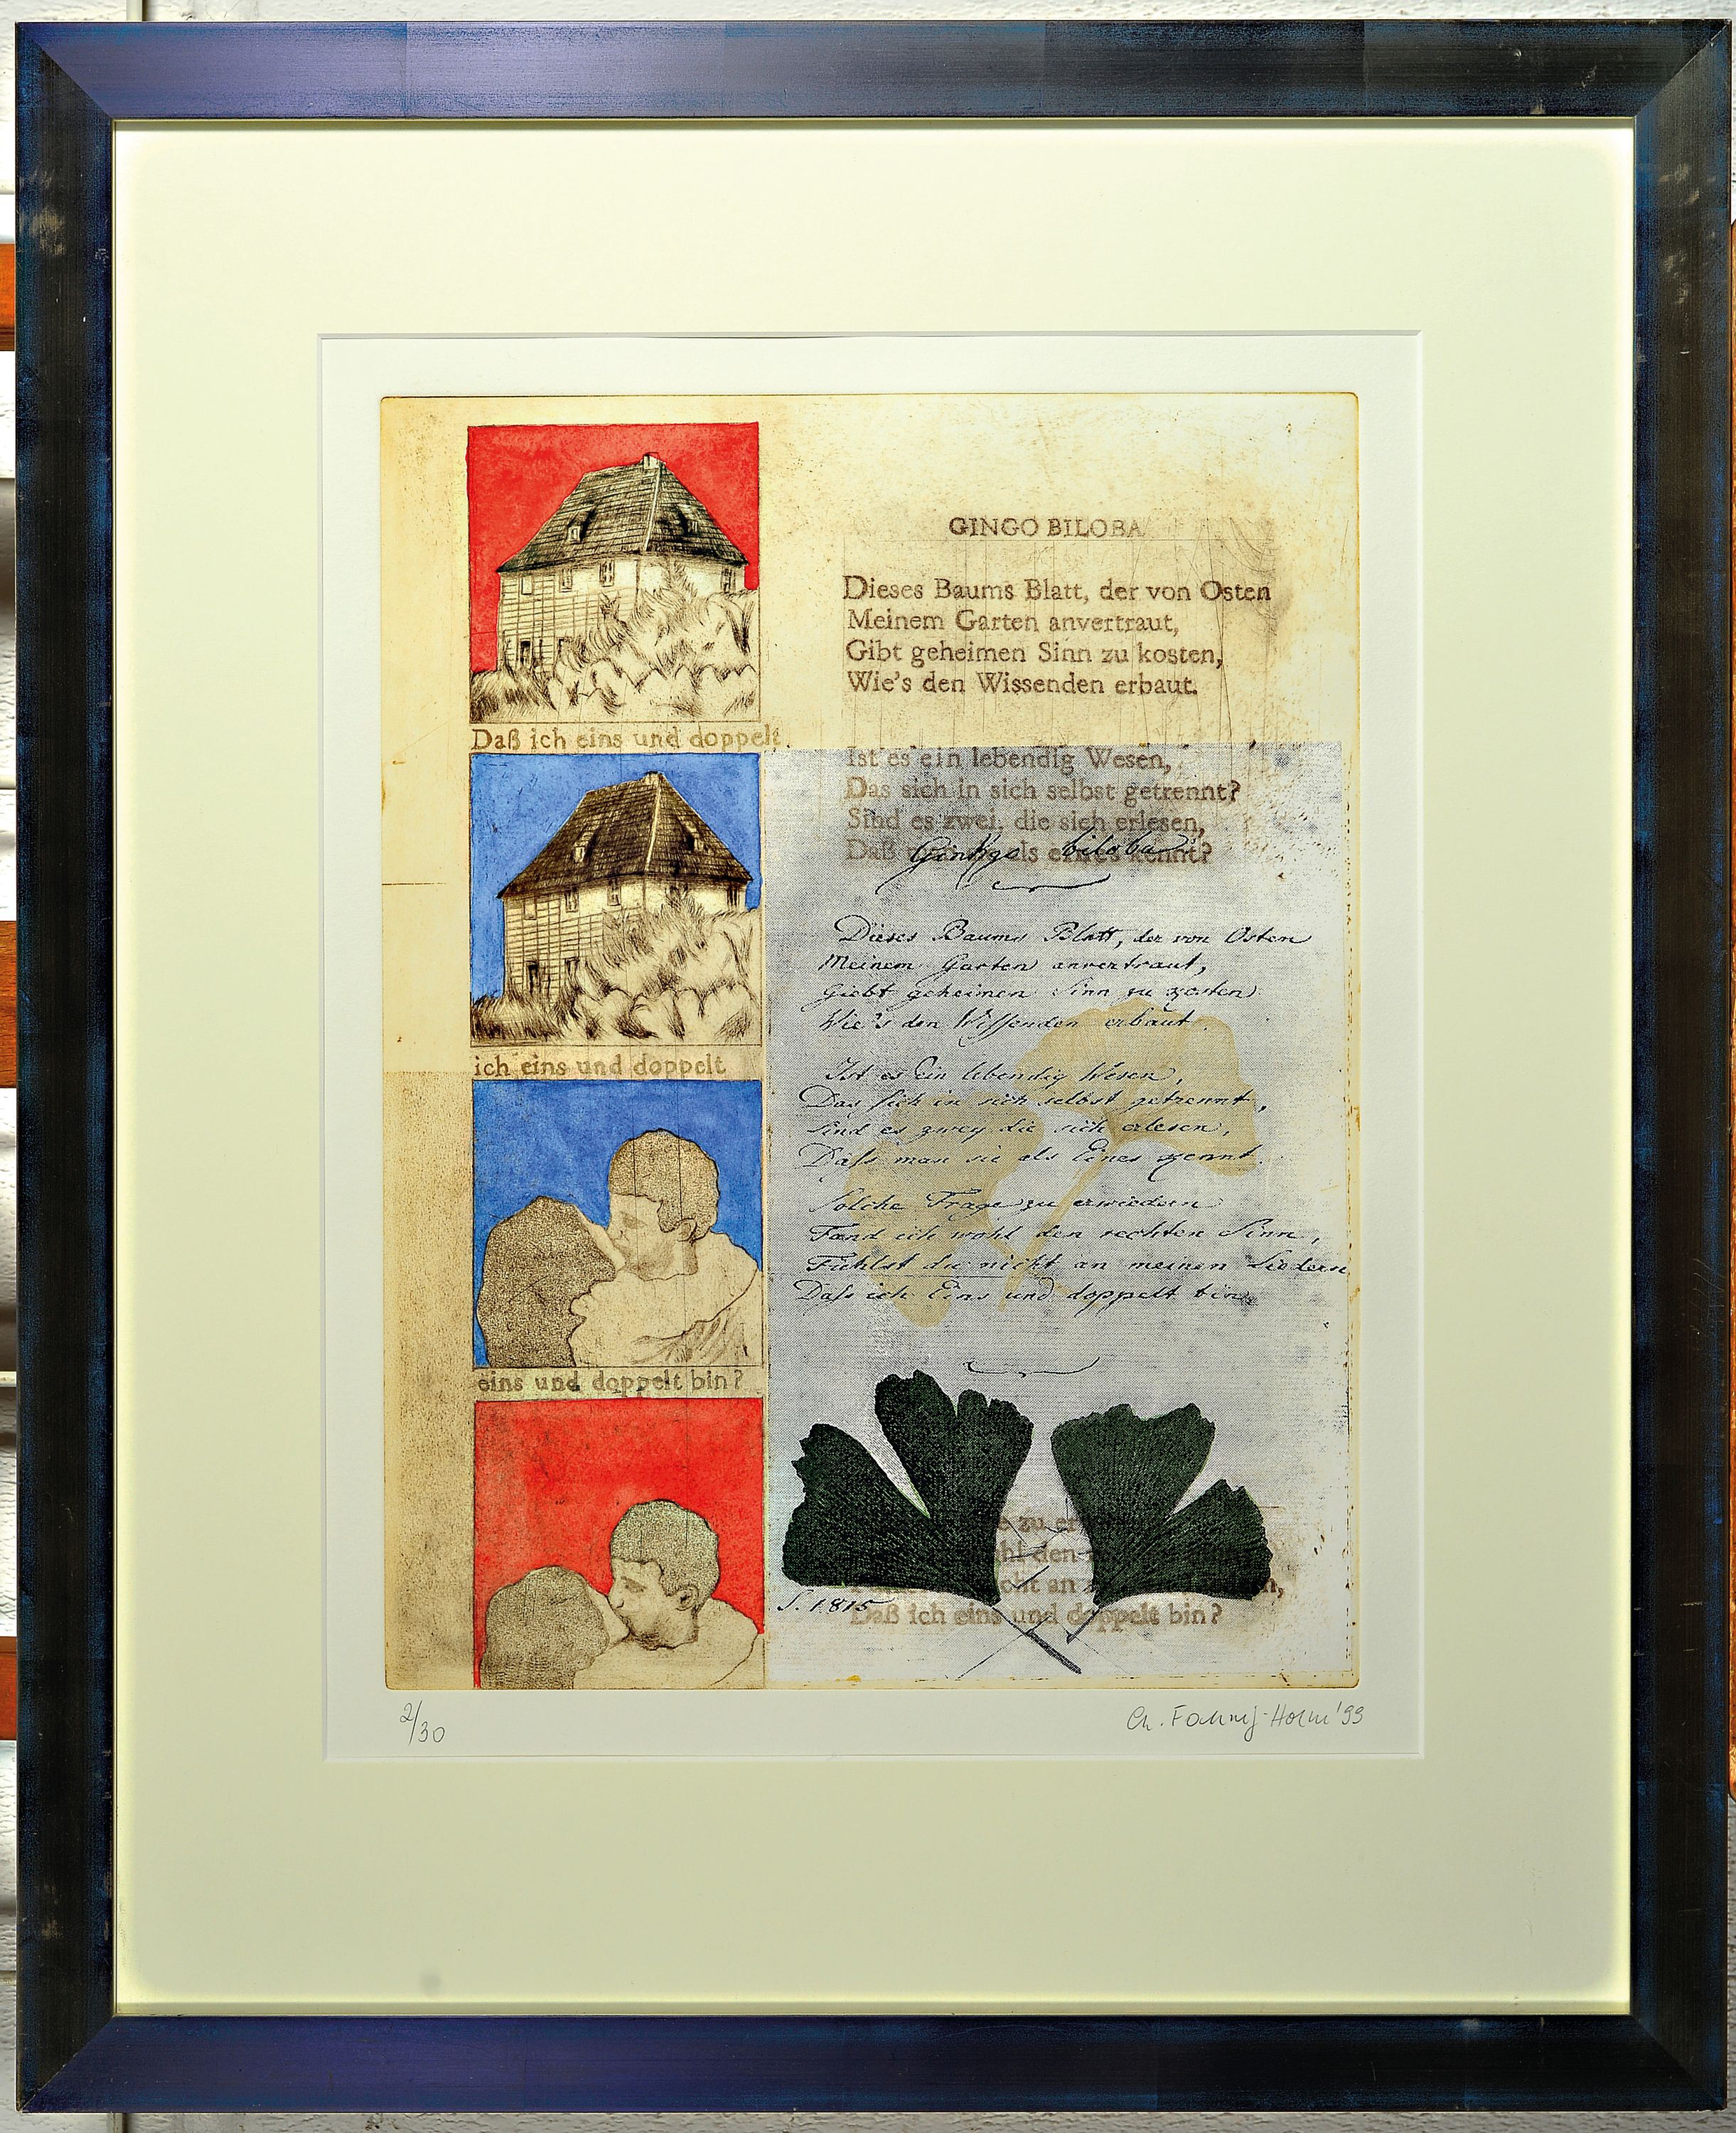 Daß ich eins und doppelt
ich eins und doppelt
eins und doppelt bin?
GINGO BILOBA
Dieses Baums Blatt, der von Osten
Meinem Garten anvertraut,
Gibt geheimen Sinn zu kosten,
Wie's den Wissenden erbaut.
Ist es ein lebendig Wesen,
Das sich in sich selbst getrennt?
Sind es zwei, die sich erlesen,
Daß als eines kennt?
Ginkgo biloba
Dieses Baums Blatt, der von Osten
Meinem Garten anvertraut,
Giebt geheimen Sinn zu kosten
Wie's den Wissenden erbaut.
Ist es Ein lebendig Wesen,
Das sich in sich selbst getrennt,
Sind es zwey die sich erlesen,
Dass man sie als Eines kennt.
Solche Frage zu erwiedern
Fand ich wohl den rechten Sinn,
Fühlst du nicht an meinen Liedern
Dass ich Eins und doppelt bin.
zu
den
an
S. 1815
Daß ich eins und doppelt bin?
2/30
Ch. Holm '99